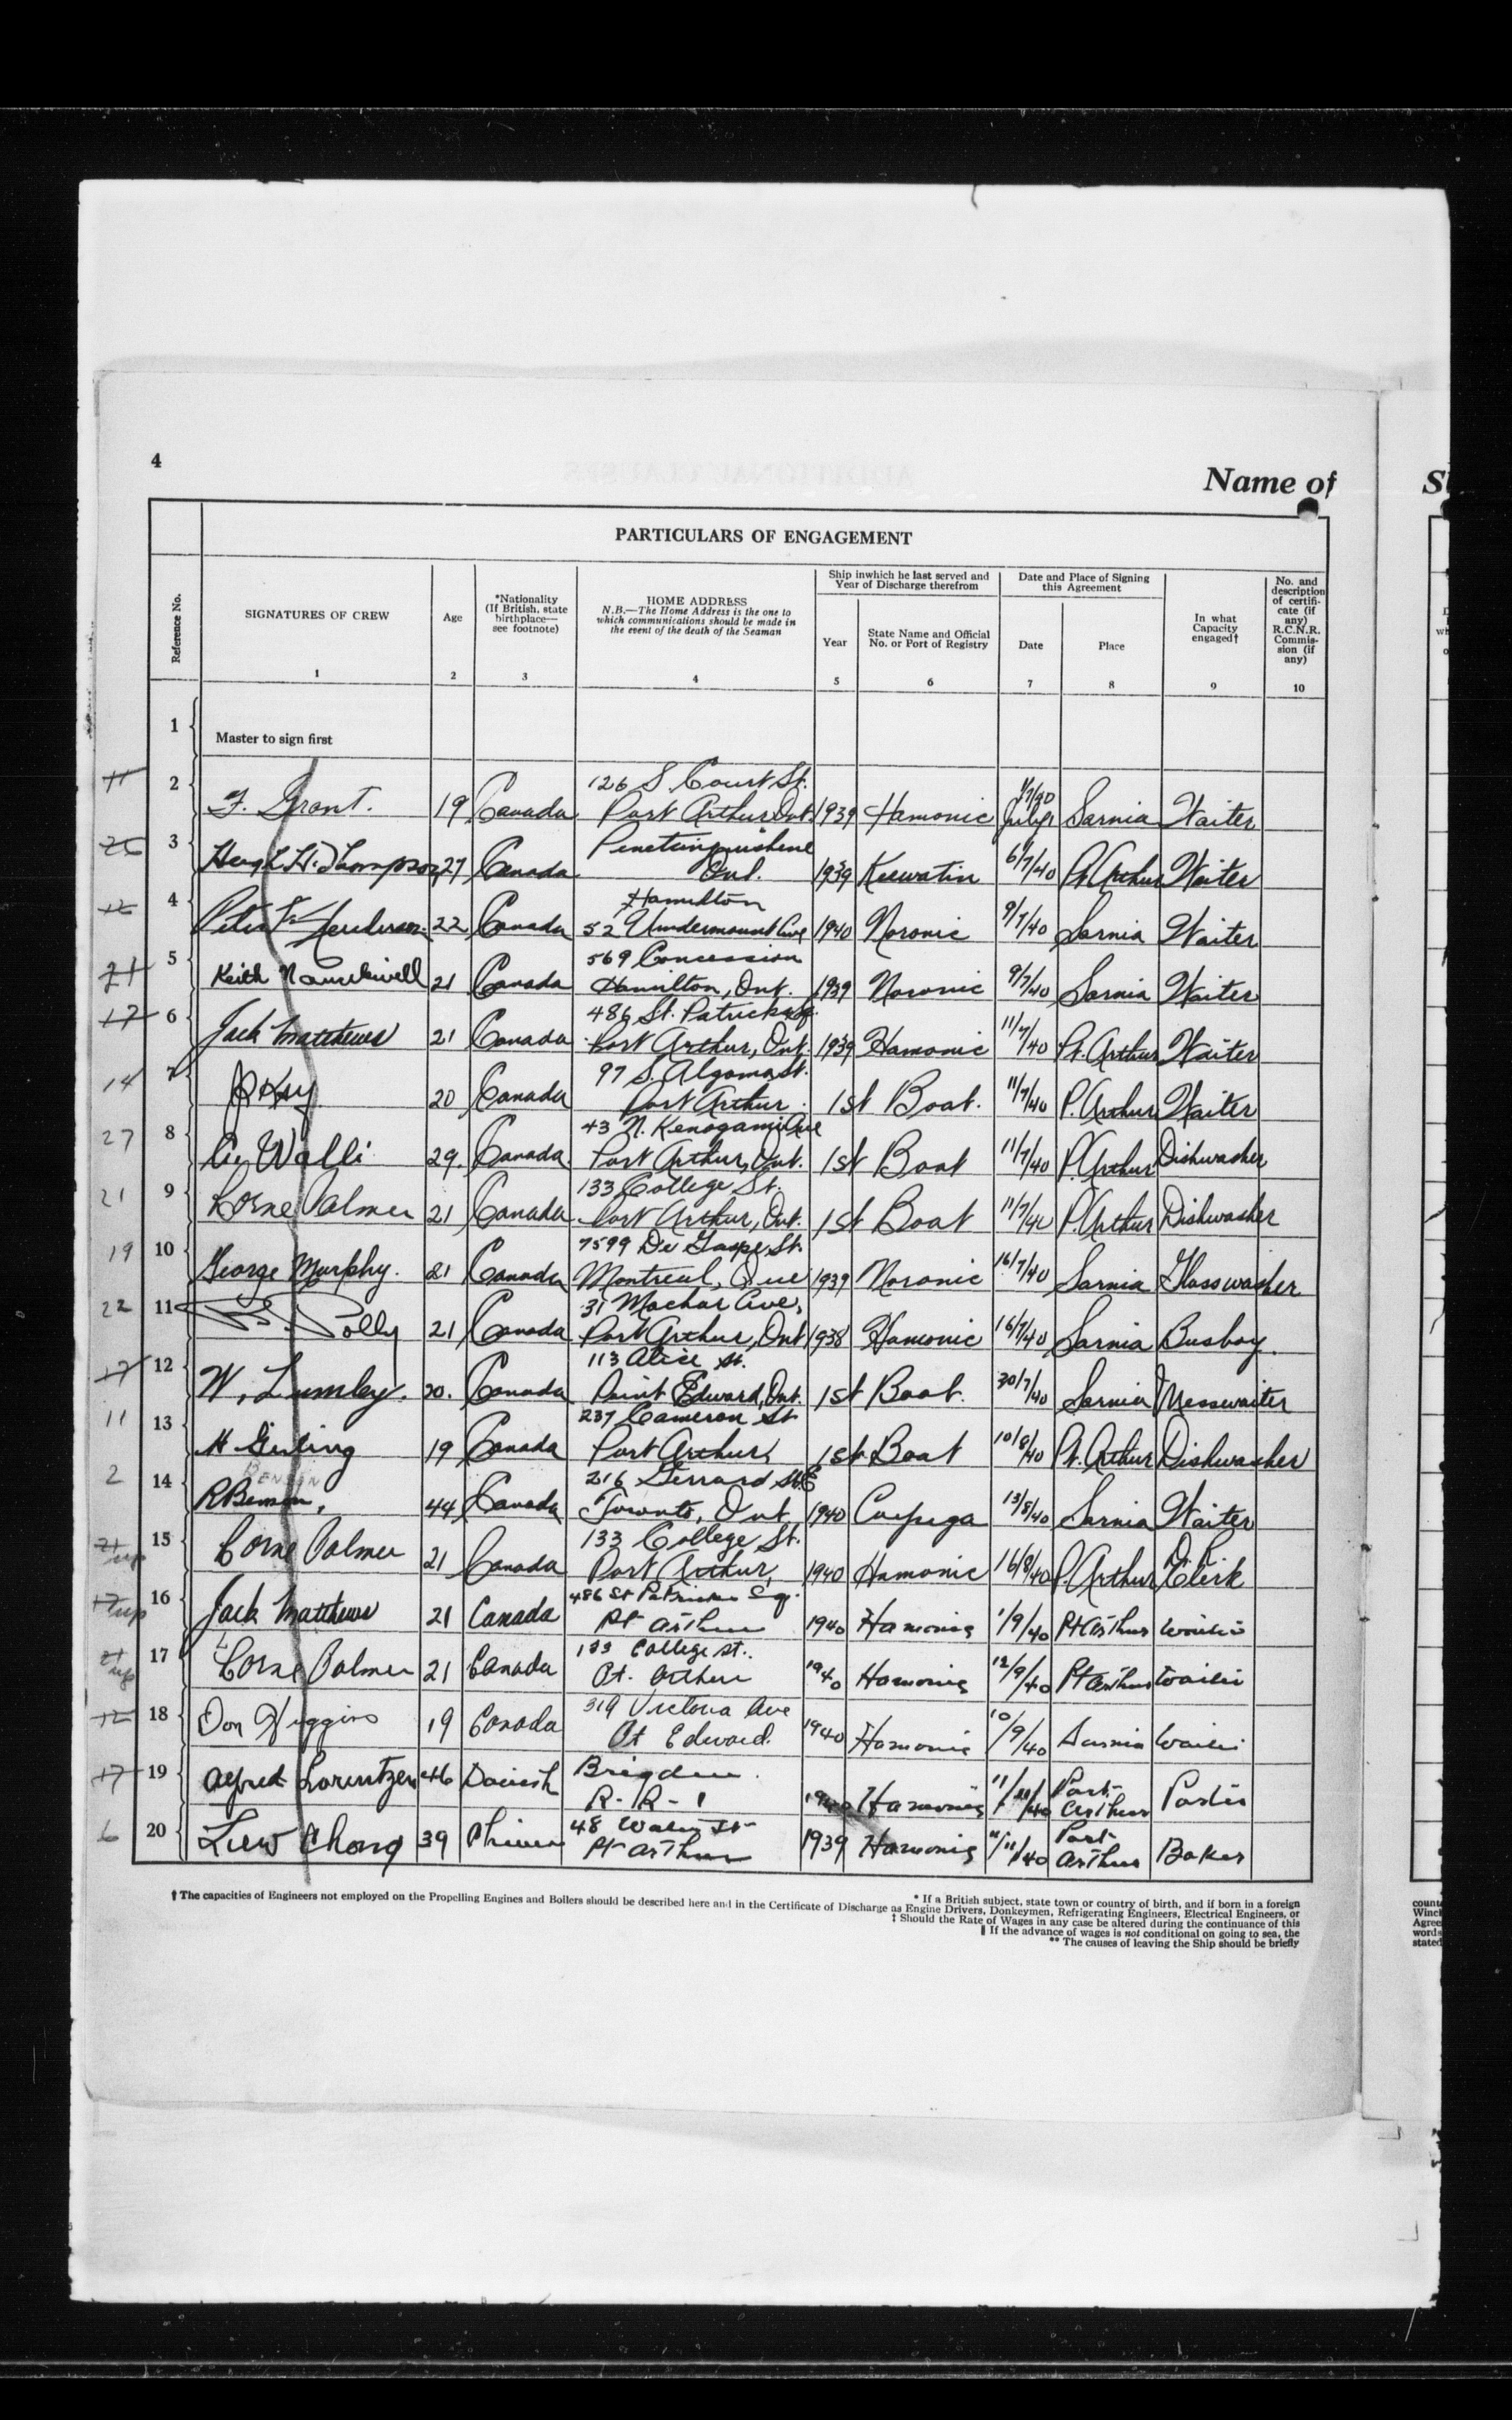 4
Name of
PARTICULARS OF ENGAGEMENT
Reference No.
SIGNATURES OF CREW
1
Age
2
*Nationality
(If British, state
birthplace—
see footnote)
3
HOME ADDRESS
N.B.—The Home Address is the one to
which communications should be made in
the event of the death of the Seaman
4
Ship inwhich he last served and
Year of Discharge therefrom
Year
5
State Name and Official
No. or Port of Registry
6
Date and Place of Signing
this Agreement
Date
7
Place
8
In what
Capacity
engaged†
9
No. and
description
of certifi-
cate (if
any)
R.C.N.R.
Commis-
sion (if
any)
10
1 Master to sign first
11 2 F. Grant. 19 Canada 126 S Court St.
Port Arthur Ont. 1939 Hamonic Sarnia Waiter
3 Hugh H. Thompson 27 Canada Penetanguishene
Ont. 1939 Keewatin 6/7/40 Pt. Arthur Waiter
12 4 Peter Henderson 22 Canada Hamilton
52 Undermount Ave 1940 Noronic 9/7/40 Sarnia Waiter
21 5 Keith 21 Canada 569 Concession
Hamilton, Ont. 1939 Noronic 9/7/40 Sarnia Waiter
17 6 Jack Matthews 21 Canada 486 St. Patrick Sq.
Port Arthur, Ont. 1939 Hamonic 11/7/40 Pt. Arthur Waiter
14 7 J Key 20 Canada 97 S. Algoma St.
Port Arthur. 1st Boat. 11/7/40 P. Arthur Waiter
27 8 Walli 29. Canada 43 N. Kenogami Ave
Port Arthur, Ont. 1st Boat 11/7/40 P. Arthur Dishwasher
21 9 Lorne Palmer 21 Canada 133 College St.
Port Arthur, Ont. 1st Boat 11/7/40 P. Arthur Dishwasher
19 10 George Murphy. 21 Canada 7599 De Gaspe St.
Montreal, Que 1939 Noronic 16/7/40 Sarnia Glasswasher
22 11 Jolly 21 Canada 31 Machar Ave,
Port Arthur, Ont 1938 Hamonic 16/7/40 Sarnia Busboy.
17 12 W. Lumley. 20. Canada 113 Alice St.
Point Edward, Ont. 1st Boat. 30/7/40 Sarnia Messwaiter
11 13 19 Canada 237 Cameron St
Port Arthur 1st Boat 10/8/40 Pt. Arthur Dishwasher
2 BENSON
14 R Benson, 44 Canada 216 Gerrard St. E
Toronto, Ont 1940 Cayuga 13/8/40 Sarnia Waiter
21 up 15 Lorne Palmer 21 Canada 133 College St.
Port Arthur, 1940 Hamonic 16/8/40 P. Arthur D. R.
Clerk
17 up 16 Jack Matthews 21 Canada 486 St Patricks Sq.
Pt Arthur 1940 Hamonic 1/9/40 Pt Arthur Waiter
21 up 17 Lorne Palmer 21 Canada 133 College St.
Pt. Arthur 1940 Hamonic 12/9/40 Pt Arthur Waiter
12 18 Don Higgins 19 Canada 319 Victoria Ave
Pt Edward. 1940 Hamonic 10/9/40 Sarnia Waiter
17 19 Alfred Lorentzen 46 Danish Brigden.
R-R-1 1940 Hamonic Port
Arthur Porter
6 20 Liew Chong 39 Chinese 48 St
Pt Arthur 1939 Hamonic 11/11/40 Port
Arthur Baker
† The capacities of Engineers not employed on the Propelling Engines and Boilers should be described here and in the Certificate of Discharge as Engine Drivers, Donkeymen, Refrigerating Engineers, Electrical Engineers, or
* If a British subject, state town or country of birth, and if born in a foreign
‡ Should the Rate of Wages in any case be altered during the continuance of this
‖ If the advance of wages is not conditional on going to sea, the
** The causes of leaving the Ship should be briefly